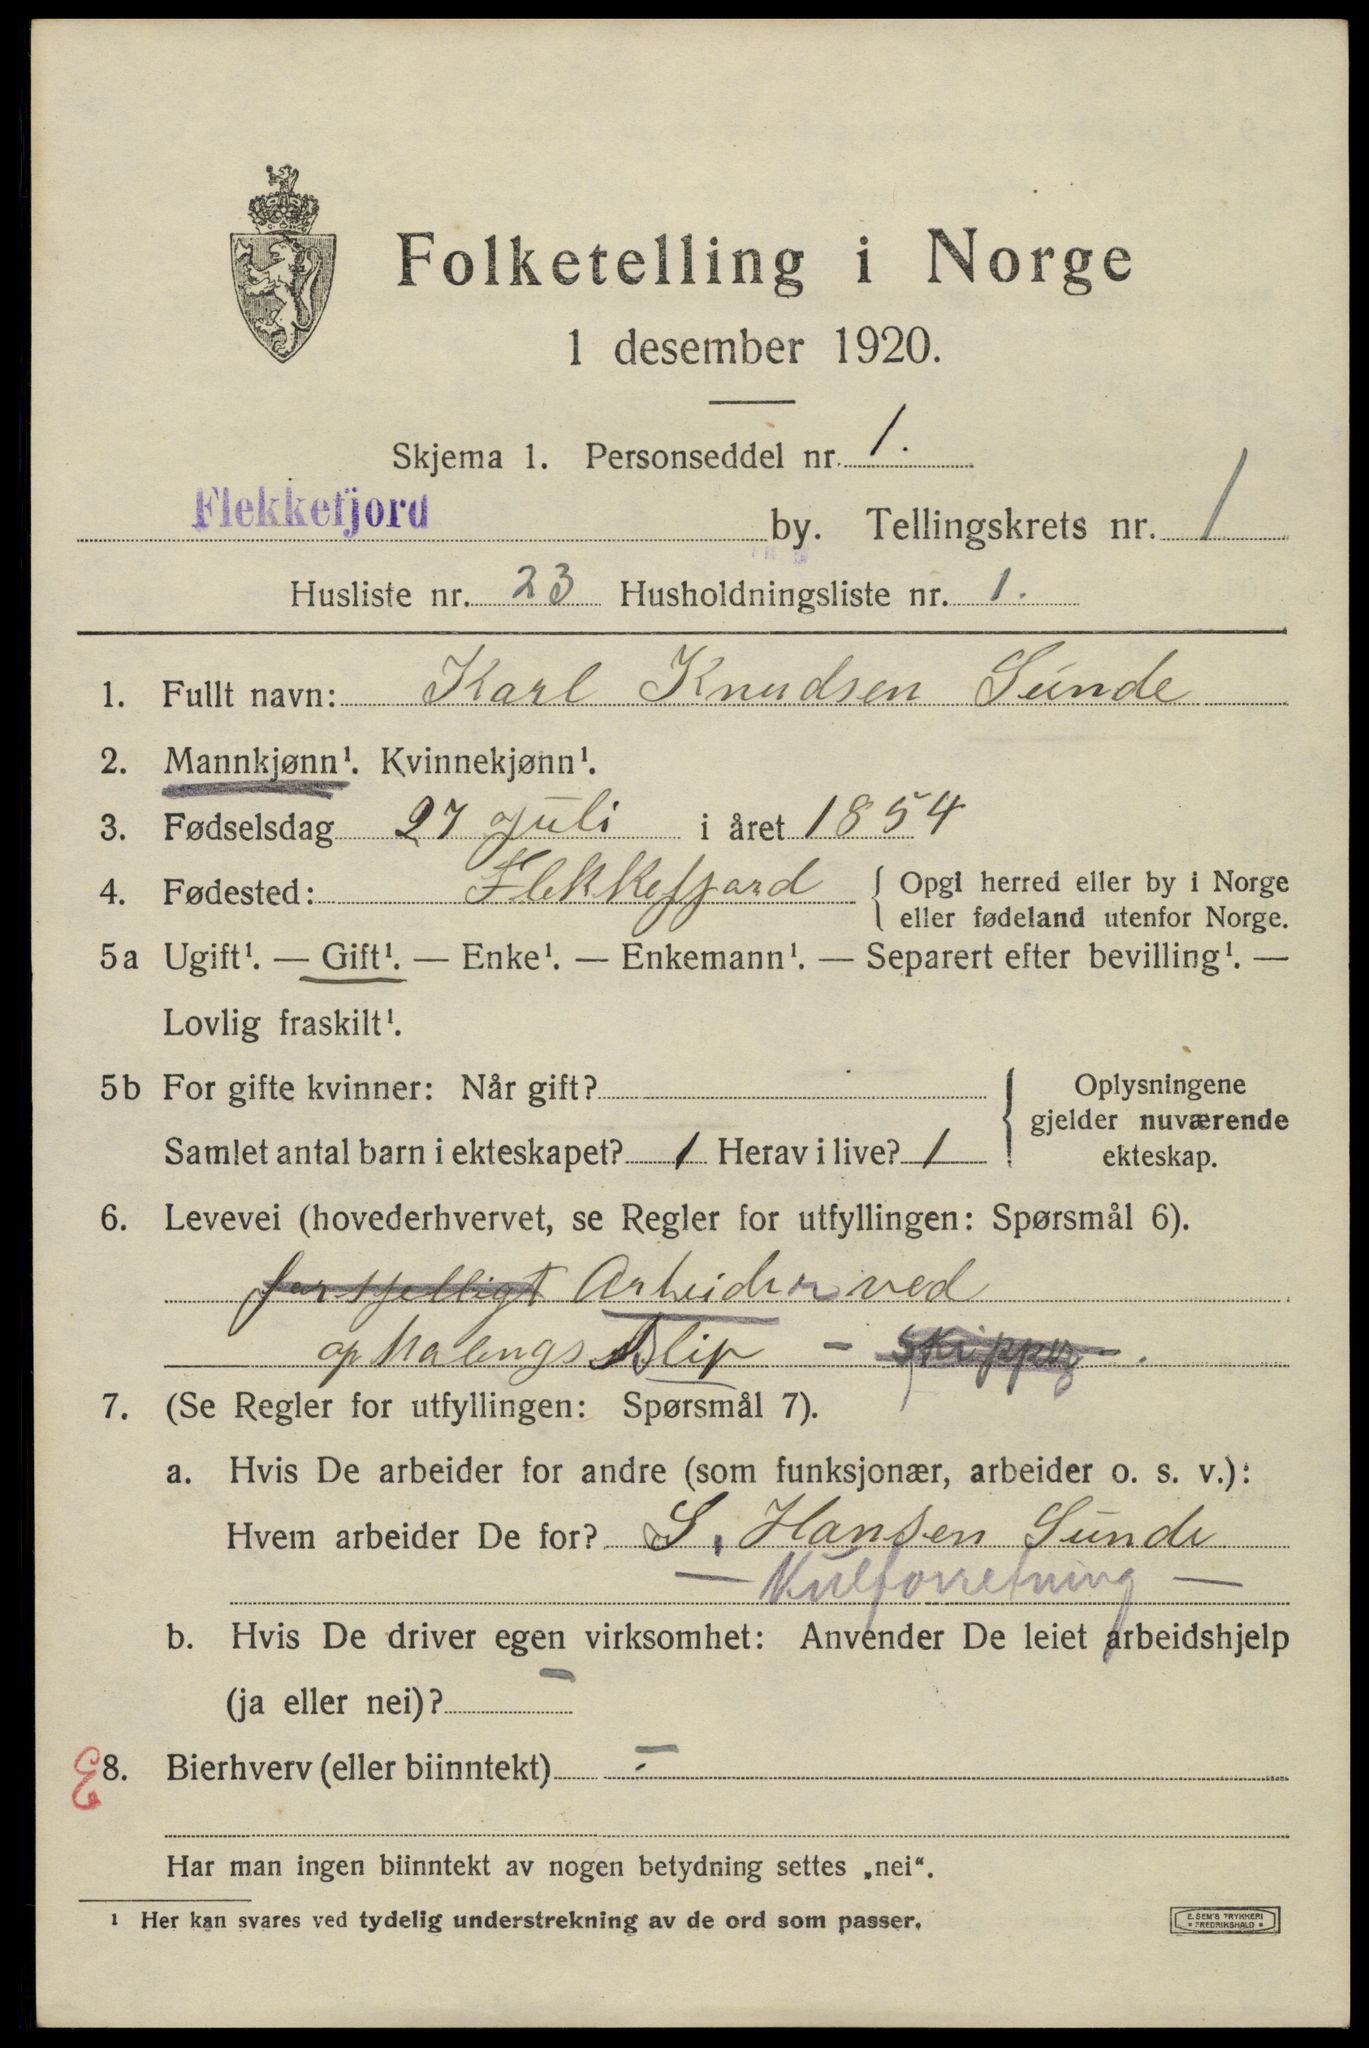 Folketelling i Norge
1 desember 1920.
Skjema 1. Personseddel nr. 1.
Flekkefjord by. Tellingskrets nr. 1
Husliste nr. 23 Husholdningsliste nr. 1.
1. Fullt navn: Karl Knudsen Sunde
2. Mannkjønn¹. Kvinnekjønn¹.
3. Fødselsdag 27 juli i året 1854
4. Fødested: Flekkefjord { Opgi herred eller by i Norge
eller fødeland utenfor Norge.
5a Ugift¹. — Gift¹. — Enke¹. — Enkemann¹. — Separert efter bevilling¹. —
Lovlig fraskilt¹.
5b For gifte kvinner: Når gift? { Oplysningene
gjelder nuværende
Samlet antal barn i ekteskapet? 1 Herav i live? 1 ekteskap.
6. Levevei (hovederhvervet, se Regler for utfyllingen: Spørsmål 6).
forskjelligt Arbeider ved
ophalings Slip - Skipper - .
7. (Se Regler for utfyllingen: Spørsmål 7).
a. Hvis De arbeider for andre (som funksjonær, arbeider o. s. v.):
Hvem arbeider De for? S. Hansen Sunde
— Kulforretning —
b. Hvis De driver egen virksomhet: Anvender De leiet arbeidshjelp
(ja eller nei)? —
8. Bierhverv (eller biinntekt) —
Har man ingen biinntekt av nogen betydning settes „nei“.
¹ Her kan svares ved tydelig understrekning av de ord som passer.
E. SEM'S TRYKKERI
• FREDRIKSHALD •